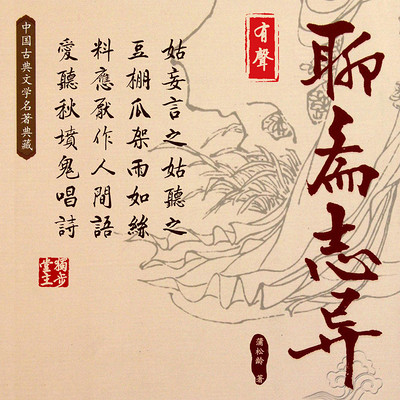 有聲
聊斋志异
蒲松龄 著
姑妄言之姑聽之
豆棚瓜架雨如絲
料應厭作人間語
愛聽秋墳鬼唱詩
中国古典文学名著典藏
獨步堂主